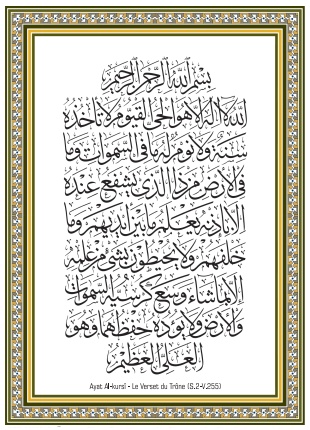 بسم الله الرحمن الرحيم
الله لا اله الا هو الحي القيوم لا تأخذه
سنة ولا نوم له ما في السموات وما
في الارض من ذا الذي يشفع عنده
الا باذنه يعلم ما بين ايديهم وما
خلفهم ولا يحيطون بشيء من علمه
الا بما شاء وسع كرسيه السموات
والارض ولا يؤده حفظهما وهو
العلي العظيم
Ayat Al-kursî - Le Verset du Trône (S.2-V.255)